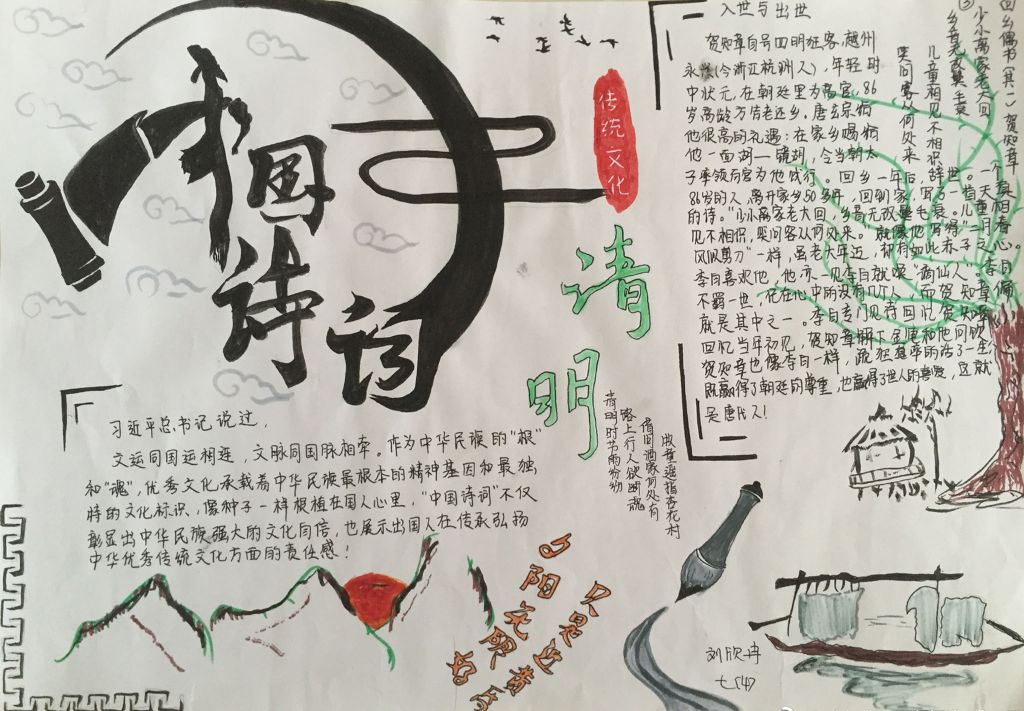 中国诗词
传统文化
清明
入世与出世
贺知章自号四明狂客,越州
永兴(今浙江杭州人),年轻时
中状元,在朝廷里为高官,86
岁高龄方告老还乡。唐玄宗给
他很高的礼遇:在家乡赐给
他一面湖—镜湖,令当朝太
子率领百官为他饯行。回乡一年后,辞世。一个
86岁的人,离开家乡50多年,回到家,写了一首天真
的诗。"少小离家老大回,乡音无改鬓毛衰。儿童相
见不相识,笑问客从何处来。"就像他写得"二月春
风似剪刀"一样,虽老大年近,却有如此赤子之心。
李白喜欢他,他亦一见李白就唤"谪仙人"。李白
不羁一世,
就是其中之一。李白专门见诗回忆贺知章
回忆当年初见,贺知章解下金龟和他同饮。
贺知章也像李白一样,疏狂
既赢得了朝廷的尊重,也赢得了世人的喜爱,这就
是唐代人!
回乡偶书(其一) 贺知章
少小离家老大回
乡音无改鬓毛衰
儿童相见不相识
笑问客从何处来
习近平总书记说过,
文运同国运相连,文脉同国脉相牵。作为中华民族的"根"
和"魂",优秀文化承载着中华民族最根本的精神基因和最独
特的文化标识,像种子一样根植在国人心里,"中国诗词"不仅
彰显出中华民族强大的文化自信,也展示出国人在传承弘扬
中华优秀传统文化方面的责任感!
清明时节雨纷纷
路上行人欲断魂
借问酒家何处有
牧童遥指杏花村
夕阳无限好
只是近黄昏
刘欣冉
七(4)